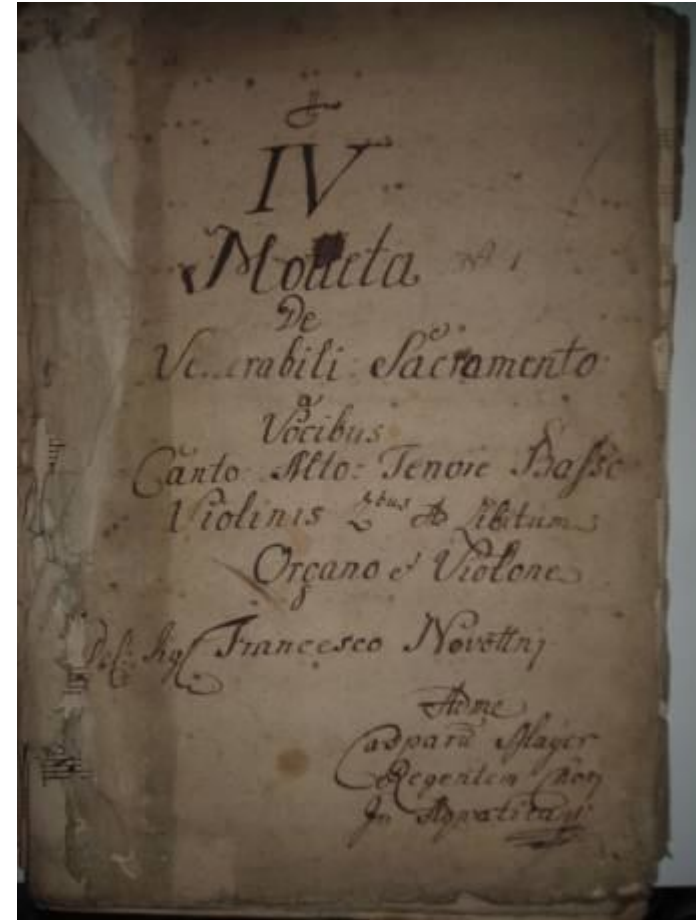 IV
Motteta No 1
De
Ve...rabili: Sacramento
a
Vocibus
Canto: Alto: Tenore Basso
Violinis 2bus Ad Libitum
Organo e Violone
Del: Sig Francesco Novottnj
Ad me
Casparu Mayer
Regentem Chori
In